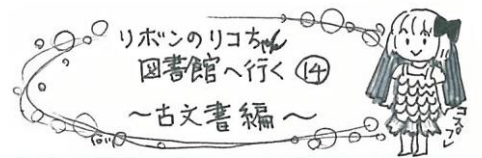 リボンのリコちゃん
図書館へ行く ⑭
～古文書編～
コスプレ